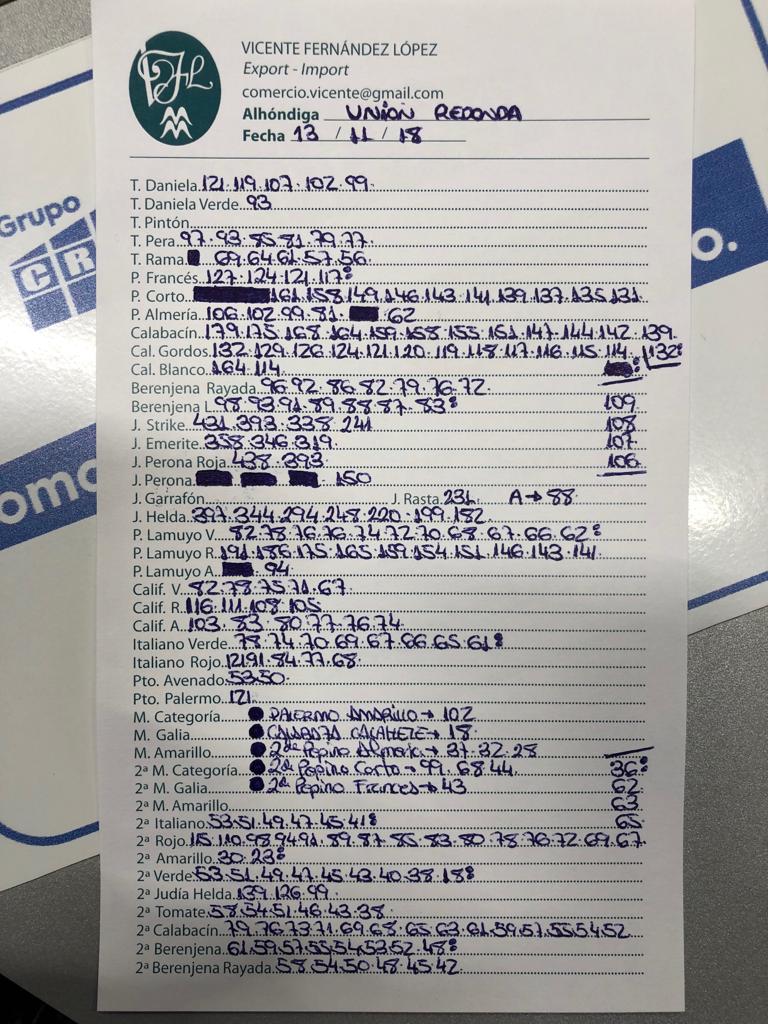 VICENTE FERNÁNDEZ LÓPEZ
Export - Import
comercio.vicente@gmail.com
Alhóndiga UNIÓN REDONDA
Fecha 13 / 11 / 18
Grupo
CR
o.
omo
T. Daniela 121. 119. 107. 102. 99.
T. Daniela Verde 93
T. Pintón
T. Pera 97. 93. 85. 81. 79. 77.
T. Rama 69. 64. 61. 57. 56
P. Francés 127. 124. 121. 117:
P. Corto 161. 158. 149. 146. 143. 141. 139. 137. 135. 131.
P. Almería 106. 102. 99. 81. 62
Calabacín 179. 175. 168. 164. 159. 158. 155. 151. 147. 144. 142. 139.
Cal. Gordos 132. 129. 126. 124. 121. 120. 119. 118. 117. 116. 115. 114. 132:
Cal. Blanco 164. 114.
Berenjena Rayada 96. 92. 86. 82. 79. 76. 72.
Berenjena L 98. 93. 91. 89. 88. 87. 83: 109
J. Strike 431. 393. 338. 241 108
J. Emerite 358. 346. 319. 107
J. Perona Roja 438. 393 106
J. Perona 150
J. Garrafón J. Rasta 231. A→ 88
J. Helda 397. 344. 294. 248. 220. 199. 182
P. Lamuyo V. 82. 78. 76. 76. 74. 72. 70. 68. 67. 66. 62:
P. Lamuyo R. 191. 186. 175. 165. 159. 154. 151. 146. 143. 141
P. Lamuyo A. 94.
Calif. V. 82. 78. 75. 71. 67.
Calif. R. 116. 111. 108. 105
Calif. A. 103. 83. 80. 77. 76. 74
Italiano Verde 78. 74. 70. 69. 67. 66. 65. 61:
Italiano Rojo 121. 91. 84. 77. 68.
Pto. Avenado 53. 50.
Pto. Palermo 121
M. Categoría PALERMO AMARILLO→ 102
M. Galia CALABAZA CACAHUETE→ 18
M. Amarillo 2ª Pepino Almería→ 37. 32. 28
2ª M. Categoría 2ª Pepino Corto→ 99. 68. 44. 36:
2ª M. Galia 2ª Pepino Francés→ 43 62
2ª M. Amarillo 63
2ª Italiano 53. 51. 49. 47. 45. 41: 65
2ª Rojo 115. 110. 98. 94. 91. 89. 87. 85. 83. 80. 78. 76. 72. 69. 67.
2ª Amarillo 30. 23:
2ª Verde 53. 51. 49. 47. 45. 43. 40. 38. 18:
2ª Judía Helda 139. 126. 99.
2ª Tomate 58. 54. 51. 46. 43. 38.
2ª Calabacín 79. 76. 73. 71. 69. 68. 65. 63. 61. 59. 57. 55. 54. 52
2ª Berenjena 61. 59. 57. 55. 54. 53. 52. 48:
2ª Berenjena Rayada 58. 54. 50. 48. 45. 42